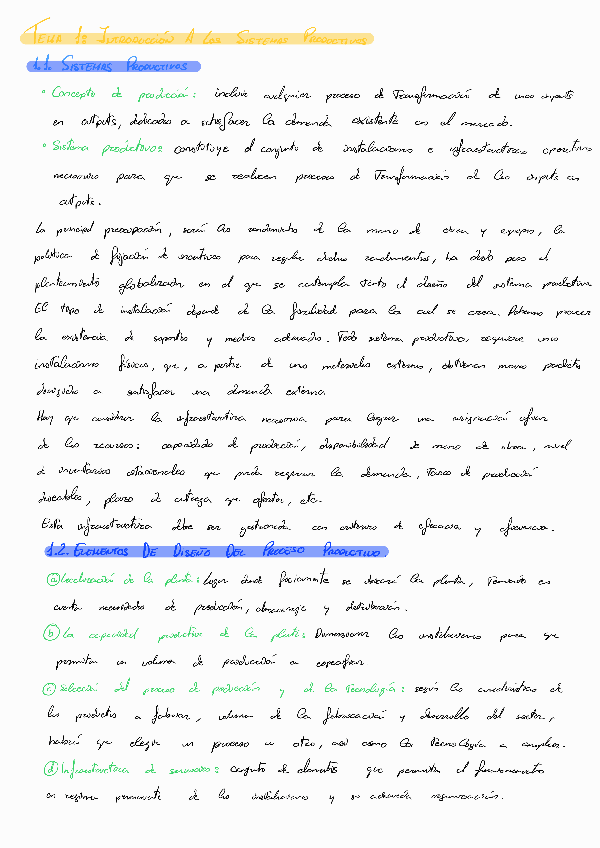 TEMA 1: INTRODUCCIÓN A LOS SISTEMAS PRODUCTIVOS
1.1. SISTEMAS PRODUCTIVOS
° Concepto de producción: incluir cualquier proceso de transformación de unos inputs
en outputs, dedicados a satisfacer la demanda existente en el mercado.
° Sistema productivo: constituye el conjunto de instalaciones e infraestructuras operativas
necesarias para que se realicen procesos de transformación de los inputs en
outputs.
La principal preocupación, serán los rendimientos de la mano de obra y equipos, la
política de fijación de incentivos para regular dichos rendimientos, ha dado paso al
planteamiento globalizador en el que se contempla tanto el diseño del sistema productivo
El tipo de instalación depende de la finalidad para la cual se crea. Podemos prever
la existencia de soportes y medios adecuados. Todo sistema productivo, requiere unas
instalaciones físicas, que, a partir de unos materiales externos, obtienen unos productos
dirigidos a satisfacer una demanda externa
Hay que considerar la infraestructura necesaria para lograr una asignación
de los recursos: capacidad de producción, disponibilidad de mano de obra, nivel
de inventarios estacionales que pueda requerir la demanda, tasas de producción
deseables, plazo de entrega que ofertar, etc.
Esta infraestructura debe ser gestionada con criterios de eficacia y eficiencia.
1.2. ELEMENTOS DE DISEÑO DEL PROCESO PRODUCTIVO
ⓐ Localización de la planta: lugar donde físicamente se ubicará la planta, teniendo en
cuenta necesidades de producción, almacenaje y distribución.
ⓑ La capacidad productiva de la planta: Dimensionar las instalaciones para que
permitan un volumen de producción a especificar
ⓒ Selección del proceso de producción y de la Tecnología: según las características de
los productos a fabricar, volumen de la fabricación y desarrollo del sector,
habrá que elegir un proceso u otro, así como la tecnología a emplear.
ⓓ Infraestructura de servicios: conjunto de elementos que permiten el funcionamiento
en régimen permanente de las instalaciones y su adecuada